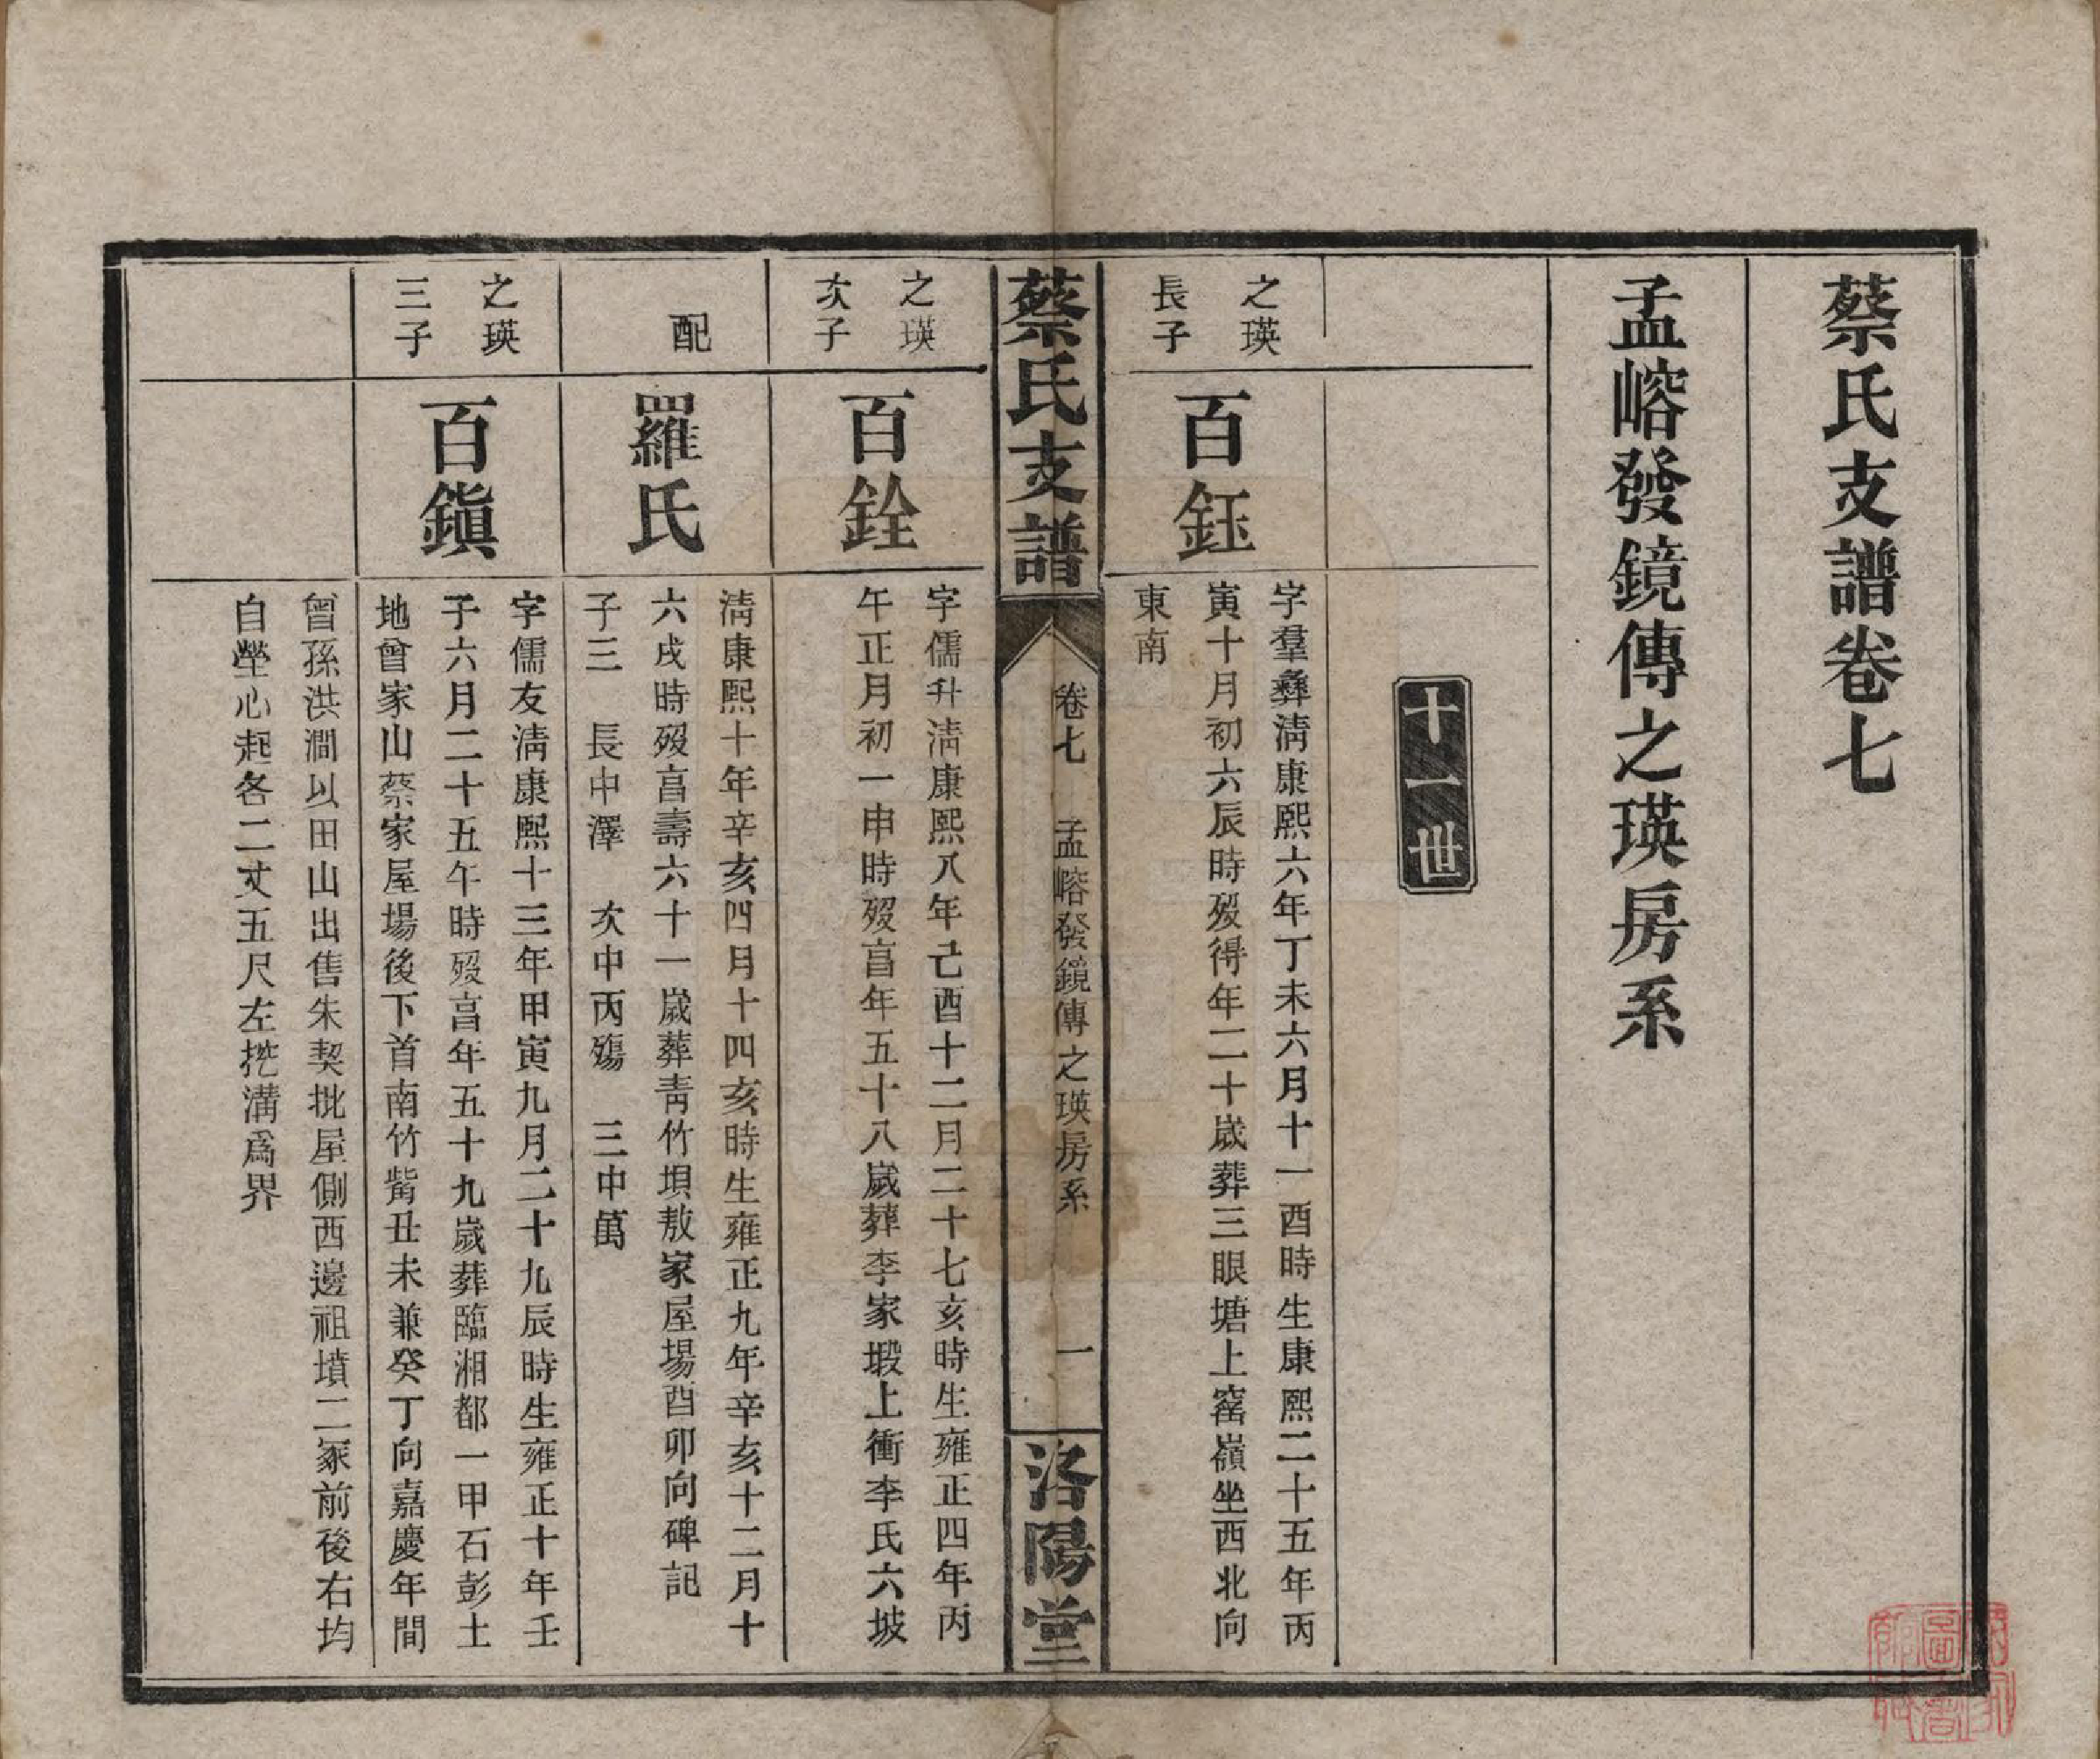 蔡氏支譜卷七
孟嵱發鏡傳之瑛房系
十一世
之瑛
長子
百鈺
字羣彝淸康熙六年丁未六月十一酉時生康熙二十五年丙
寅十月初六辰時歿得年二十歲葬三眼塘上窰嶺坐西北向
東南
蔡氏支譜
卷七
孟嵱發鏡傳之瑛房系
一
洛陽堂
之瑛
次子
百銓
字儒升淸康熙八年己酉十二月二十七亥時生雍正四年丙
午正月初一申時歿亯年五十八歲葬李家塅上衝李氏六坡
配
羅氏
淸康熙十年辛亥四月十四亥時生雍正九年辛亥十二月十
六戌時歿亯壽六十一歲葬靑竹垻敖家屋場酉卯向碑記
子三 長中澤 次中丙殤 三中萬
之瑛
三子
百鎭
字儒友淸康熙十三年甲寅九月二十九辰時生雍正十年壬
子六月二十五午時歿亯年五十九歲葬臨湘都一甲石彭土
地曾家山蔡家屋場後下首南竹觜丑未兼癸丁向嘉慶年間
曾孫洪澗以田山出售朱契批屋側西邊祖墳二冢前後右均
自塋心起各二丈五尺左挖溝爲界